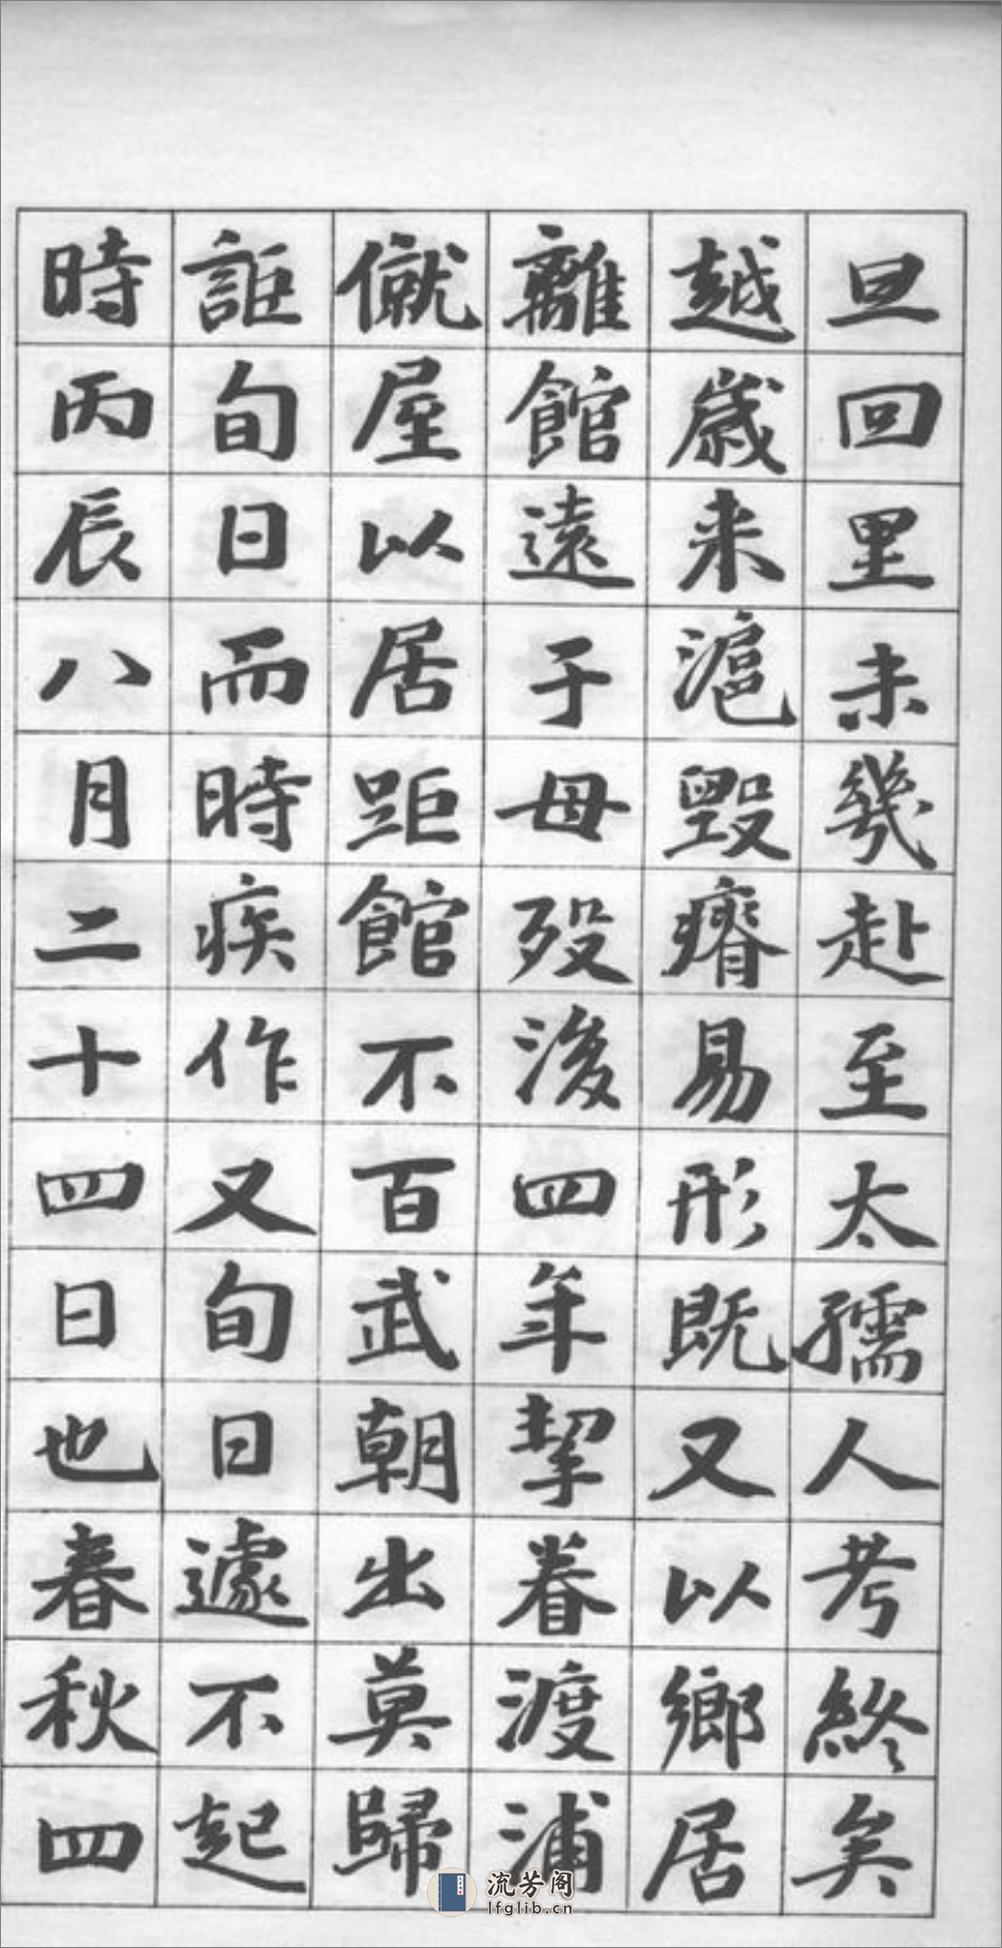 旦回里未幾赴至太孺人考終矣
越歲来滬毀瘠易形既又以鄉居
離館遠于母歿後四年挈眷渡浦
僦屋以居距館不百武朝出莫歸
詎旬日而時疾作又旬日遽不起
時丙辰八月二十四日也春秋四
流芳阁
lfglib.cn